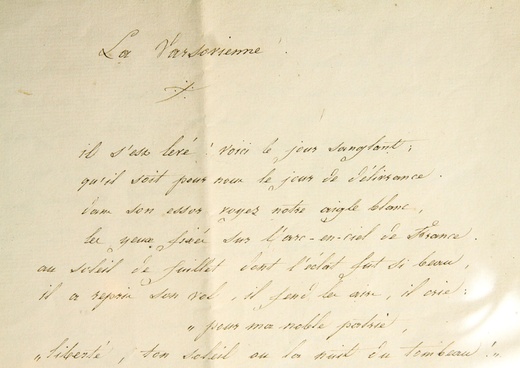 La Varsovienne.
il s'est levé ! voici le jour sanglant ;
qu'il soit pour nous le jour de délivrance.
dans son essor voyez notre aigle blanc,
les yeux fixés sur l'arc-en-ciel de France.
au soleil de juillet dont l'éclat fut si beau,
il a repris son vol, il fend les airs, il crie :
" pour ma noble patrie,
" liberté, ton soleil ou la nuit du tombeau ! "